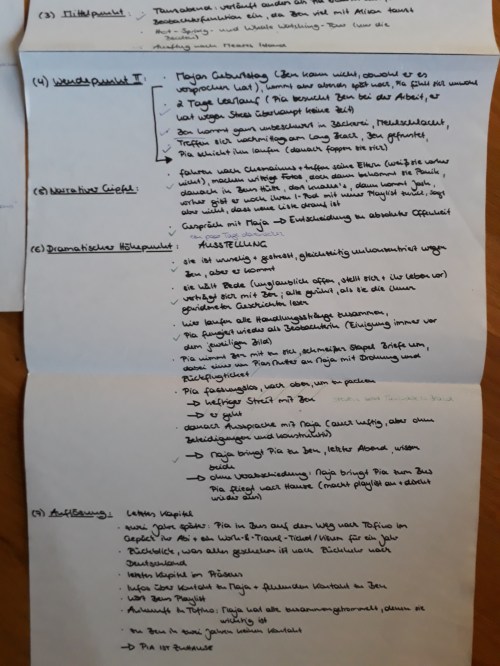 (3) Mittelpunkt: Tanzabend: verläuft anders als
Beobachterfunktion ein, da Zen viel mit Alison tanzt
Hot-Spring- und Whale Watching-Tour (nur die
beiden)
Ausflug nach Meares Island
(4) Wendepunkt II: Majas Geburtstag (Zen kann nicht, obwohl er es
versprochen hat), kommt aber abends spät noch, Pia fühlt sich unwohl
2 Tage Leerlauf (Pia besucht Zen bei der Arbeit, er
hat wegen Stress überhaupt keine Zeit)
Zen kommt ganz unbeschwert in Bäckerei,
Treffen sich nachmittag am Long Beach, Zen
Pia schickt ihn laufen (danach foppen sie sich)
fahren nach + treffen seine Eltern (weiß sie vorher
nicht), machen witzige Fotos, doch dann bekommt sie Panik,
danach in Zens Hütte, dort knallt's, dann kommt Josh,
vorher gibt er noch ihren I-Pod mit einer Playlist
aber nicht, dass neue Liste drauf ist
(5) Narrativer Gipfel:
Gespräch mit Maja → Entscheidung zu absoluter Offenheit
(6) Dramatischer Höhepunkt: AUSSTELLUNG
sie ist unruhig + gestresst, gleichzeitig unkonzentriert wegen
Zen, aber er kommt
sie hält Rede (unglaublich offen, stellt sich + ihr Leben vor)
verträgt sich mit Zen; alle gerührt, als sie die ihnen
gewidmeten Geschichten lesen
hier laufen alle Handlungsstränge zusammen,
Pia fungiert wieder als Beobachterin (Einigung immer vor
dem jeweiligen Bild)
Pia nimmt Zen mit zu sich, schmeißen Stapel Briefe um,
dabei einer von Pias Mutter an Maja mit Drohung und
Rückflugticket
Pia fassungslos, nach oben, um zu packen
→ heftiger Streit mit Zen
→ er geht
danach Aussprache mit Maja (auch heftig, aber ohne
Beleidigungen und konstruktiv)
→ Maja bringt Pia zu Zen, letzter Abend, wissen
beide
→ ohne Verabschiedung: Maja bringt Pia zum Bus
Pia fliegt nach Hause (macht Playlist an + löscht
wieder ein)
(7) Auflösung: Letztes Kapitel
zwei Jahre später: Pia in Bus auf dem Weg nach Tofino im
Gepäck ihr Abi + ein Work-&-Travel-Ticket/Visum für ein Jahr
Rückblick, was alles geschehen ist nach Rückkehr nach
Deutschland
letztes Kapitel im Präsens
Infos über Kontakt zu Maja + fehlenden Kontakt zu Zen
hört Zens Playlist
Ankunft in Tofino: Maja hat alle zusammengetrommelt, denen sie
wichtig ist
zu Zen in zwei Jahren keinen Kontakt
→ PIA IST ZUHAUSE